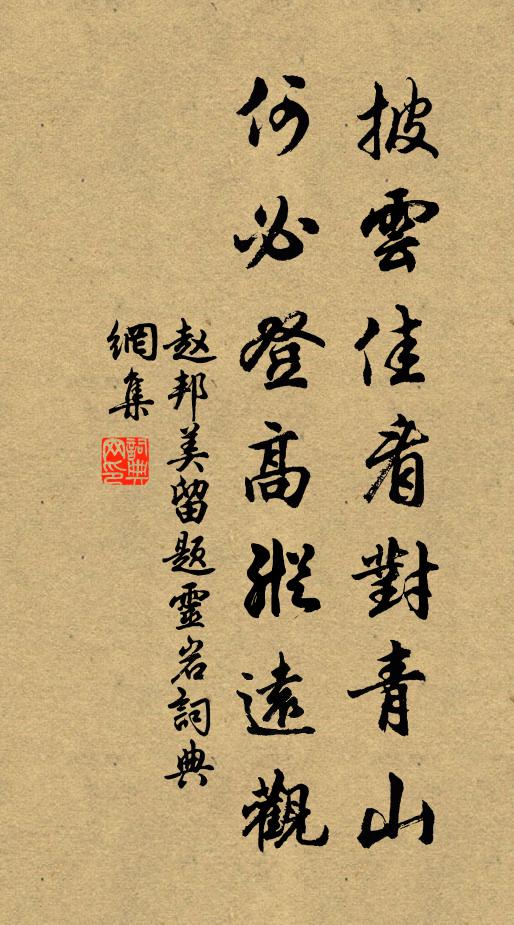 披雲佳者對青山
何必登高縱遠觀
赵邦美留題靈岩詞典
網集
詞典
网印